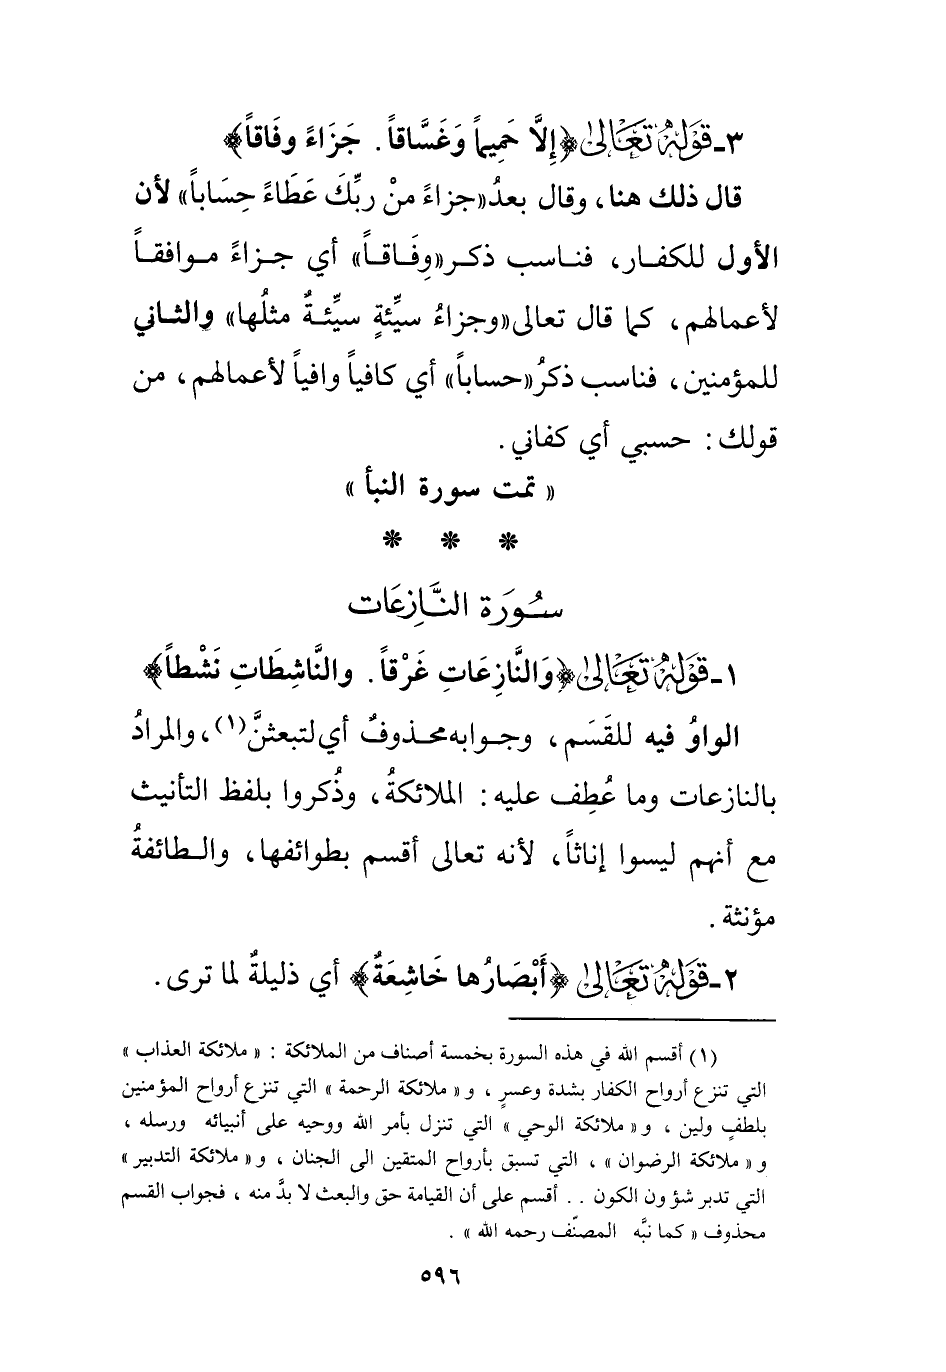 ٣ـ قَوْلُهُ تَعَالَىٰ ﴿إِلَّا حَمِيماً وَغَسَّاقاً. جَزَاءً وِفَاقاً﴾
قال ذلك هنا، وقال بعدُ «جزاءً منْ ربِّكَ عَطَاءً حِسَاباً» لأن
الأول للكفـار، فنـاسب ذكـر «وِفَـاقـاً» أي جـزاءً مـوافقـاً
لأعمالهم، كما قال تعالى «وجزاءُ سيِّئةٍ سيِّئـةٌ مثلُها» والثـاني
للمؤمنين، فناسب ذكرُ «حساباً» أي كافياً وافياً لأعمالهم، من
قولك: حسبي أي كفاني.
« تمت سورة النبأ »
* * *
سُورَة النَّازِعَات
١ـ قَوْلُهُ تَعَالَىٰ ﴿وَالنَّازِعَاتِ غَرْقاً. والنَّاشِطَاتِ نَشْطاً﴾
الواوُ فيه للقَسَم، وجـوابه محـذوفٌ أي لتبعثنَّ(١)، والمرادُ
بالنازعات وما عُطِف عليه: الملائكةُ، وذُكروا بلفظ التأنيث
مع أنهم ليسوا إناثاً، لأنه تعالى أقسم بطوائفها، والـطائفةُ
مؤنثة.
٢ـ قَوْلُهُ تَعَالَىٰ ﴿أَبْصَارُها خَاشِعَةٌ﴾ أي ذليلةٌ لما ترى.
(١) أقسم الله في هذه السورة بخمسة أصناف من الملائكة : « ملائكة العذاب »
التي تنزع أرواح الكفار بشدة وعسرٍ ، و « ملائكة الرحمة » التي تنزع أرواح المؤمنين
بلطفٍ ولين ، و « ملائكة الوحي » التي تنزل بأمر الله ووحيه على أنبيائه ورسله ،
و « ملائكة الرضوان » ، التي تسبق بأرواح المتقين الى الجنان ، و « ملائكة التدبير »
التي تدبر شؤون الكون . . أقسم على أن القيامة حق والبعث لا بدَّ منه ، فجواب القسم
محذوف « كما نبَّه المصنّف رحمه الله » .
٥٩٦